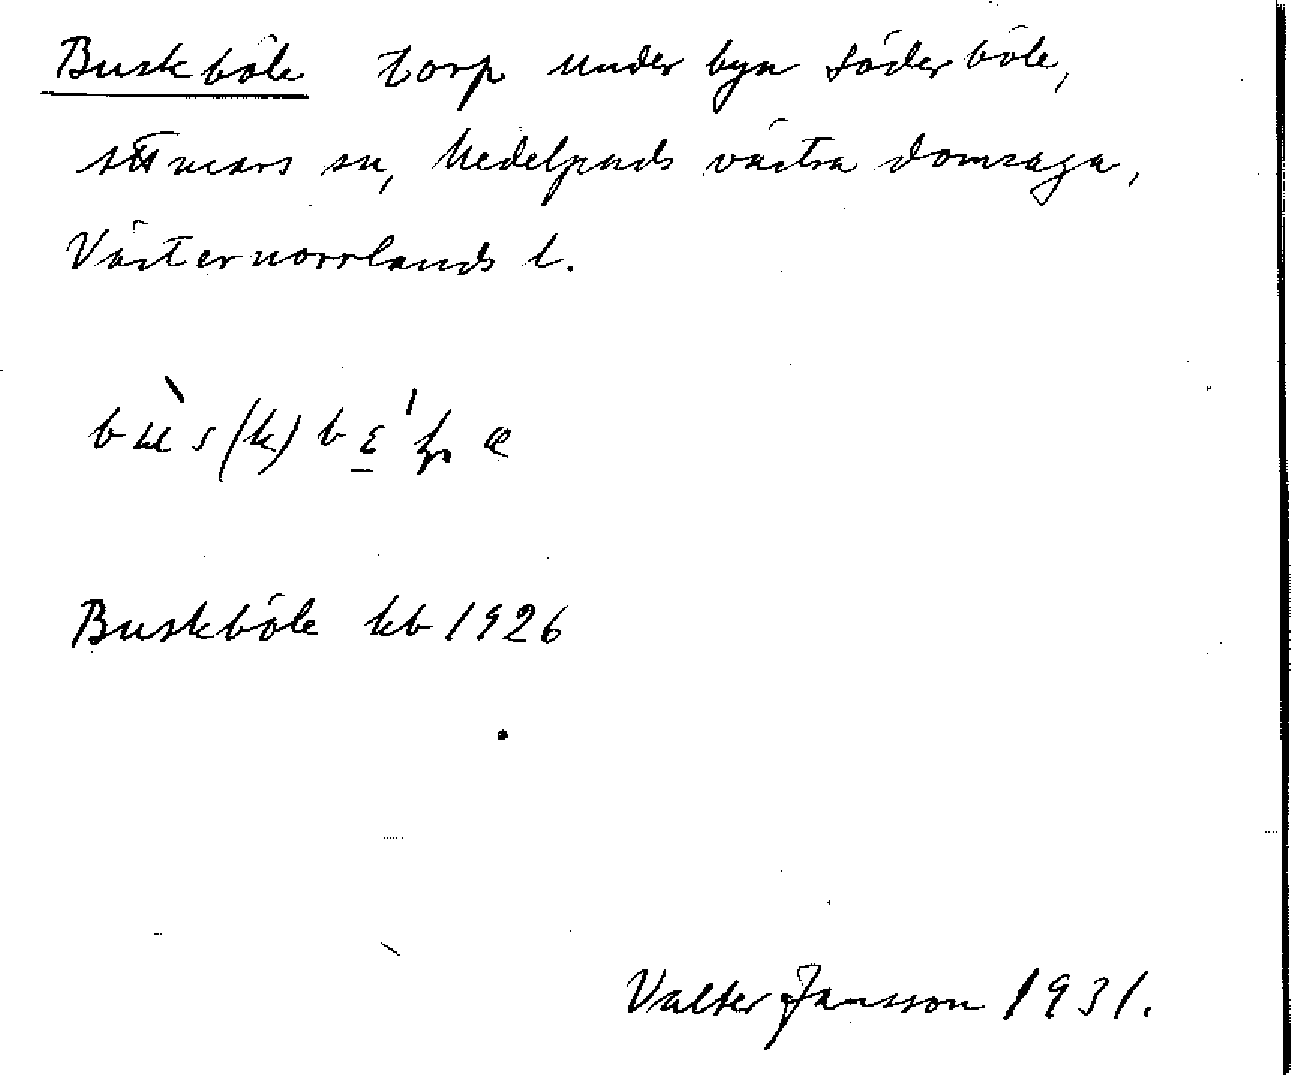 Buskböle torp under byn Söderböle,
Attmars sn, Medelpads västra domsaga,
Västernorrlands l.
Buskböle kb 1926
Valter Jansson 1931.